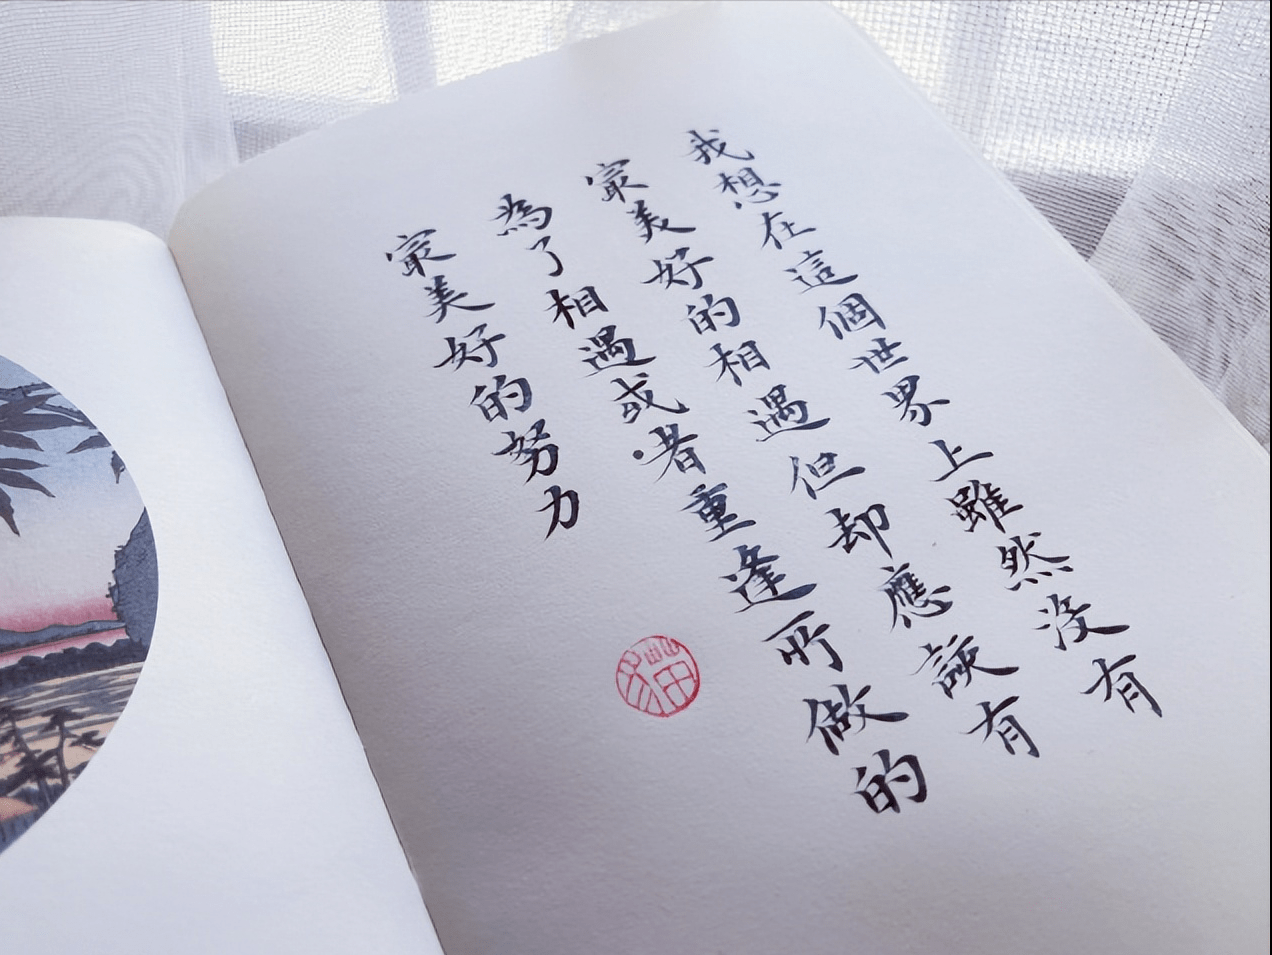 我想在這個世界上雖然沒有
最美好的相遇但却應該有
為了相遇或者重逢所做的
最美好的努力